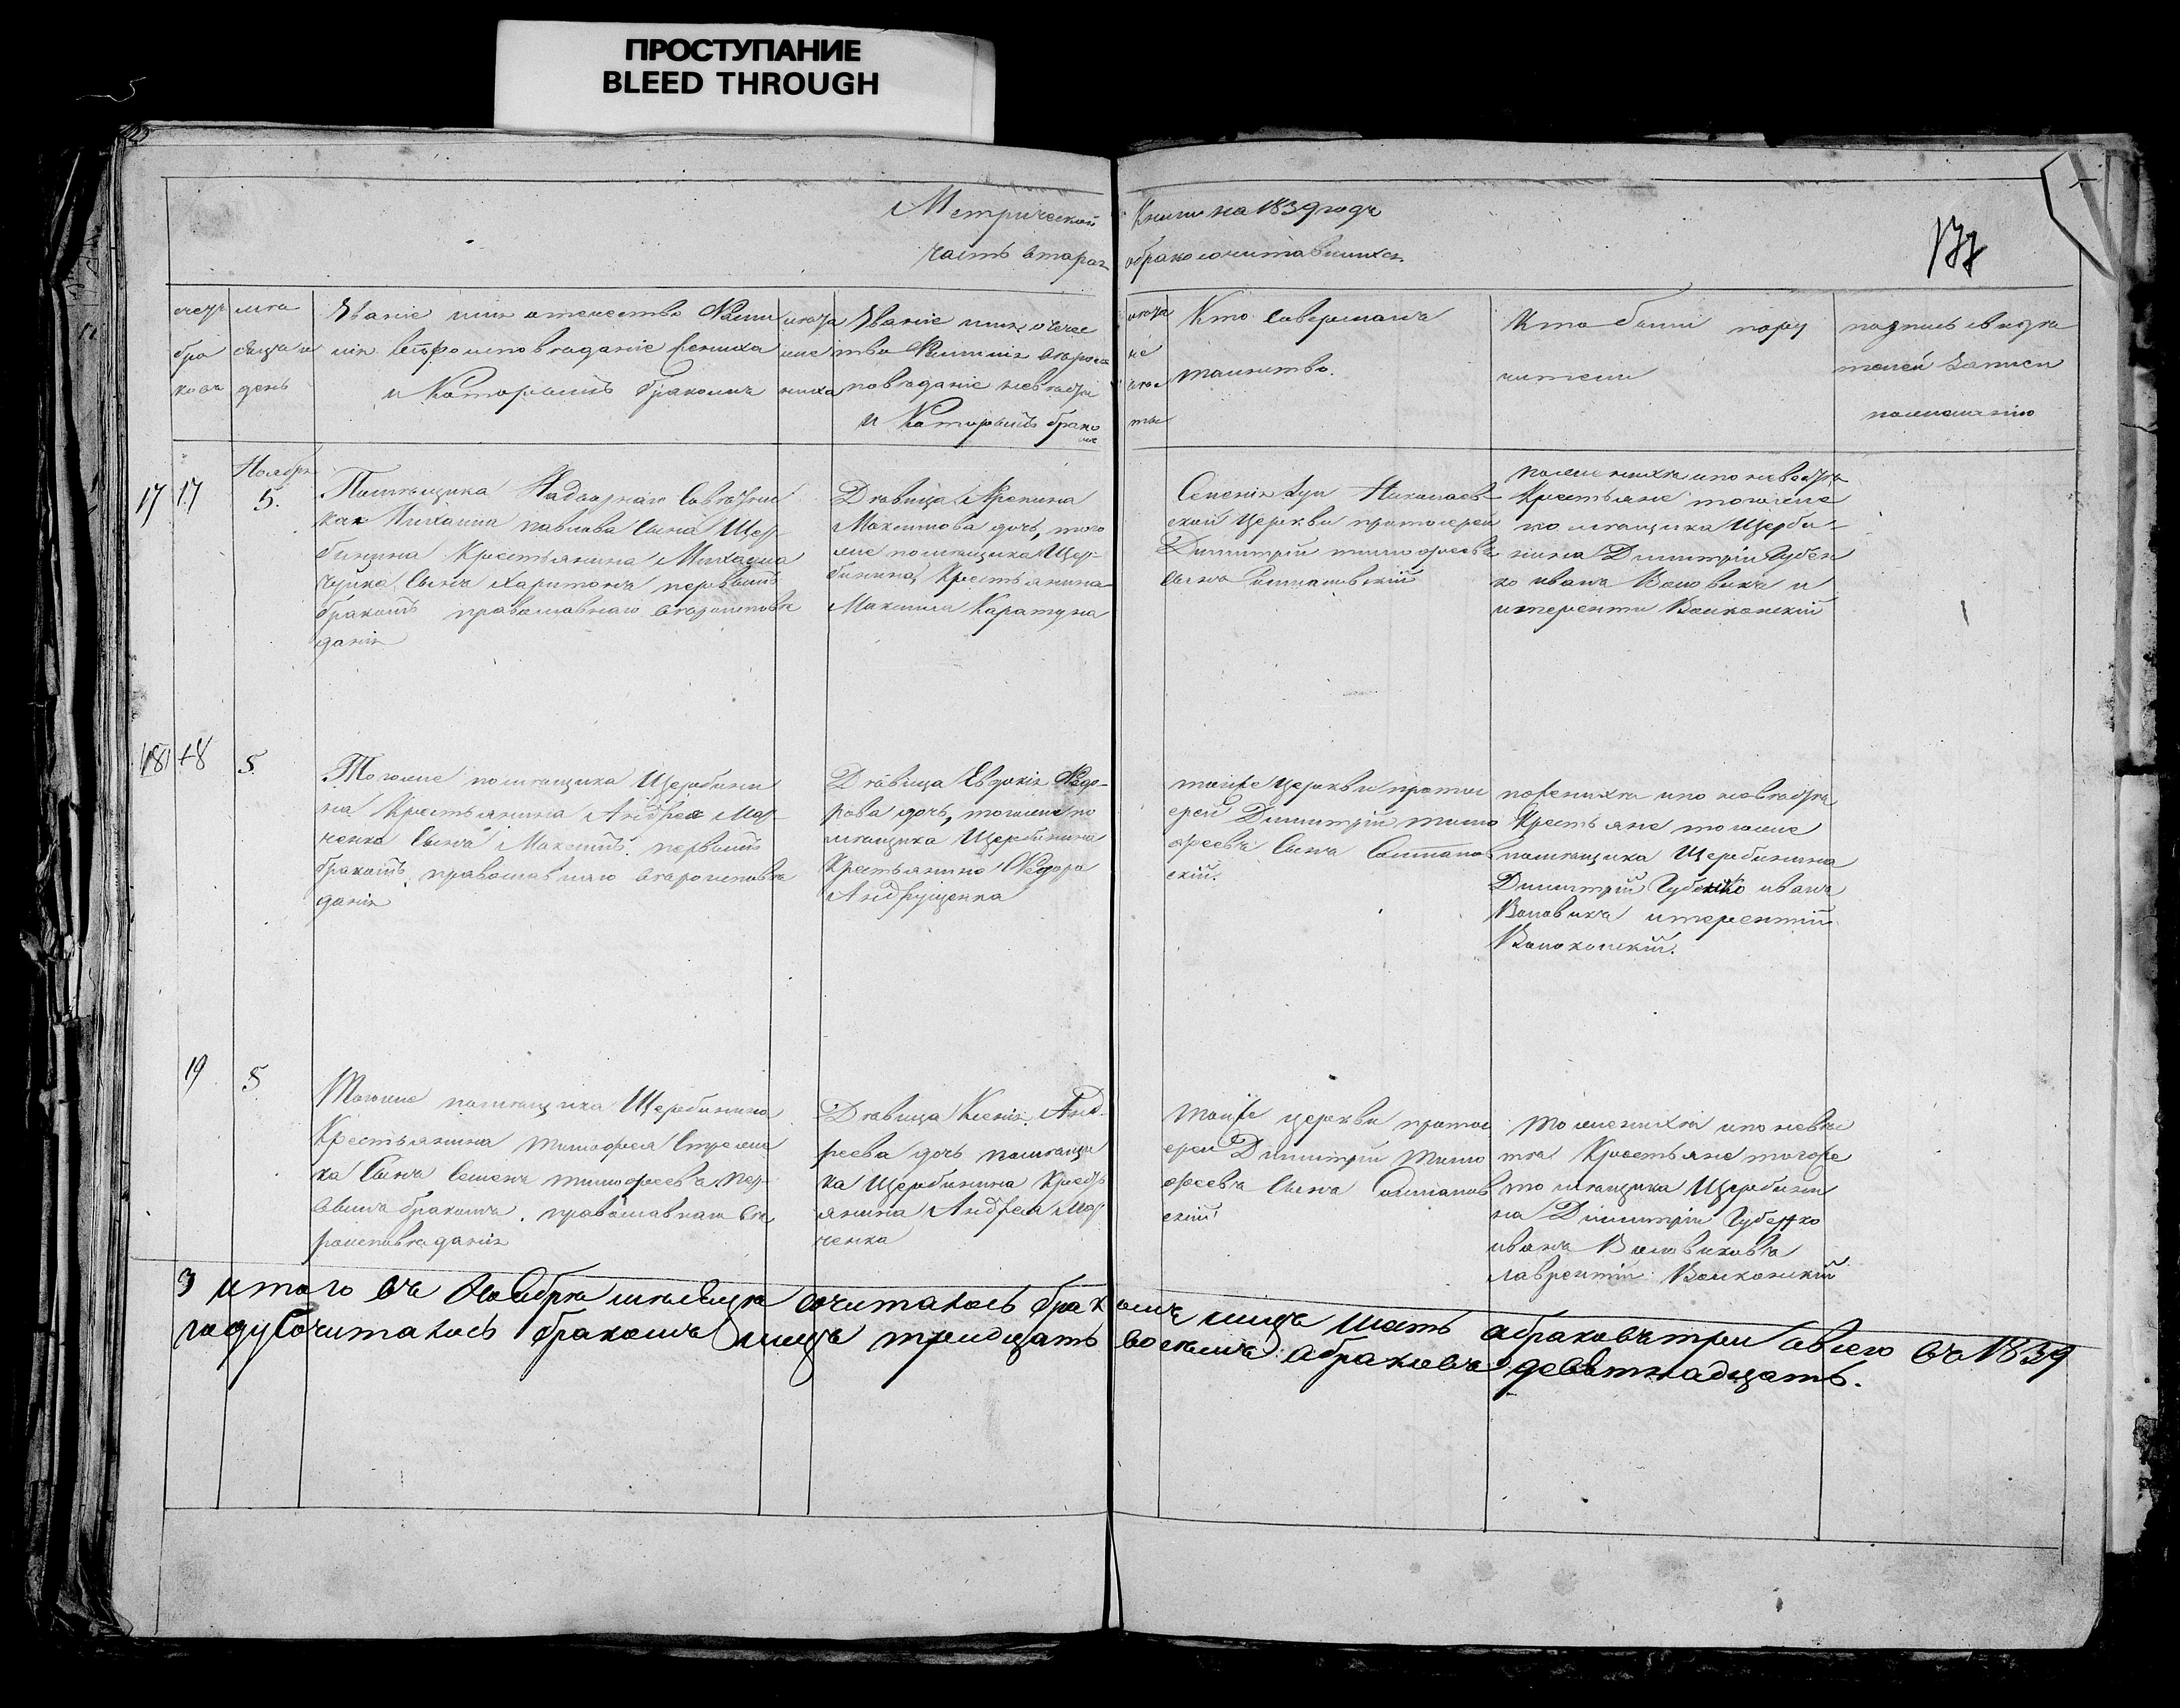 ПРОСТУПАНИЕ
BLEED THROUGH
Метрической
Книги на 1839 годъ
часть вторая
о бракосочитавшихся
177
счетъ
бра
ковъ
мѣ
сяцъ и
день
Званіе имя отечество Фами
лія вѣроисповѣданіе жениха
и Которымъ бракомъ
лѣта
же
ниха
Званіе имя отечес
тво Фамилія вѣроис
повѣданіе невѣсты
и Которымъ брако
мъ
лѣта
не
вѣс
ты
Кто Совершалъ
таинство.
Кто были пору
чители
подпись свидѣ
телей Записи
пожеланію
Ноября
17 17 5.
Помѣщика Надворнаго Совѣтни
ка Михаила павлова Сына Щер-
бинина Крестьянина Михаила
Чуйка Сынъ Харитонъ первымъ
бракомъ православнаго вѣроисповѣ
данія
Дѣвица Ирина
Максимова дочь, того
же помѣщика Щер-
бинина Крестьянина
Максима Каратуна
Николаев-
ской Церкви протоіерей
Димитрій тимофеевъ
сынъ
по женихѣ и по невѣстѣ
Крестьяне того же
помѣщика Щерби-
нина Димитрій Губен
ко иванъ Воловикъ и
итерентій Волконскій
18 18 5
Того же помѣщика Щербини
на Крестьянина Андрея Мар-
ченка Сынъ Максимъ первымъ
бракомъ православнаго вѣроисповѣ
данія
Дѣвица Евдокія Федо-
рова дочь, того же по
мѣщика Щербинина
Крестьянина Федора
Андрущенка
той же Церкви протоі
ерей Димитрій тимо
феевъ Сынъ
скій.
по женихѣ и по невѣстѣ
Крестьяне того же
помѣщика Щербинина
Димитрій Губенко иванъ
Воловикъ итерентій
Волконскій.
19 5
Того же помѣщика Щербинина
Крестьянина тимофея Стрелже
ка Сынъ Семенъ тимофеевъ пер-
вымъ бракомъ. православнаго вѣ
роисповѣданія
Дѣвица Ксенія Анд-
реева дочь помѣщи
ка Щербинина Крестъ
янина Андрея Мар
ченка
той же церкви протоі
ерей Димитрій Тимо
феевъ Сынъ
скій
по женихѣ и по невѣс
тѣ Крестьяне того же
помѣщика Щербини
на Димитрій Губенко
иванъ Воловиковъ
лаврентій Волконскій
3 итого въ Ноябрѣ мѣсяцѣ сочиталось бракомъ лицъ шесть а браковъ три а всего въ 1839
году Сочиталось бракомъ лицъ тридцать восемь а браковъ девятнадцать.